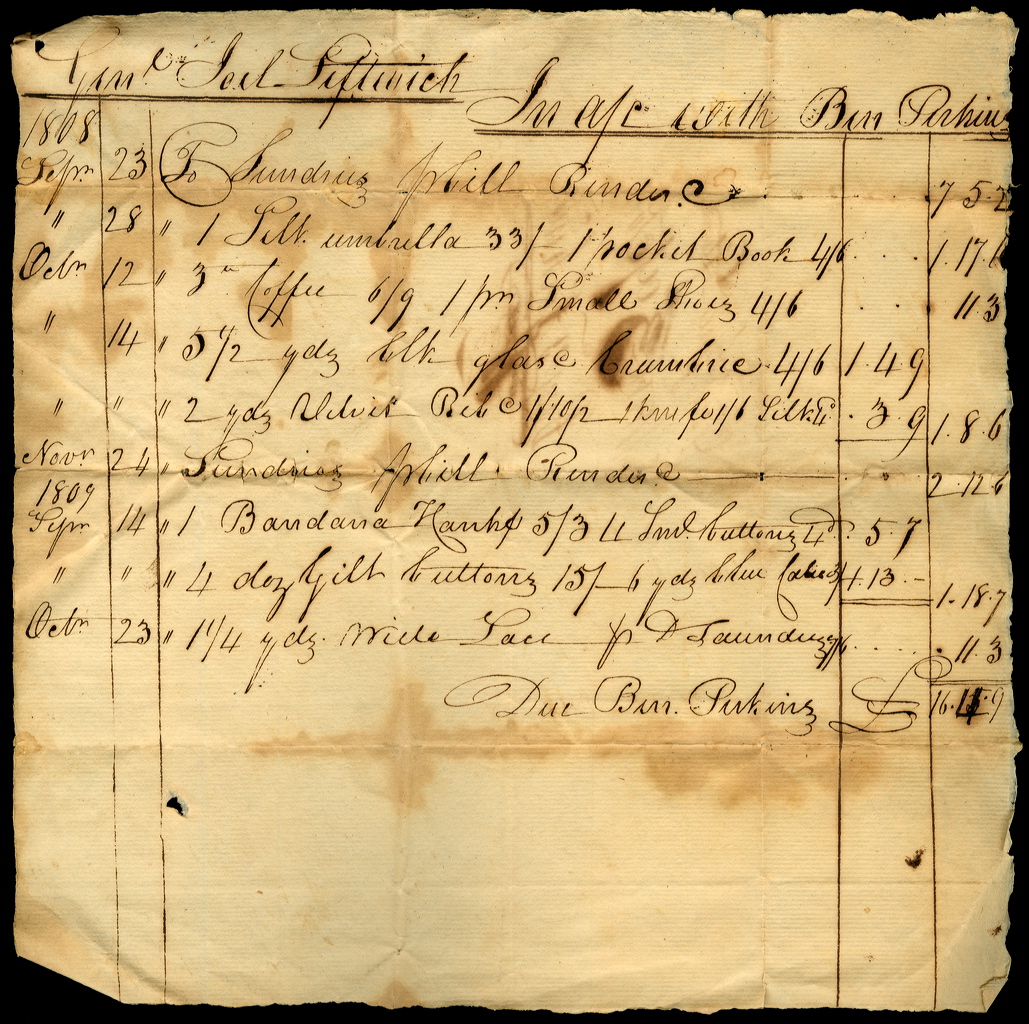 Genl. Joel Leftwich
In a/c with Ben Perkins
1808
Sepr 23 To Sundries p bill Renderd 7 5
" 28 " 1 Silk umbrella 33/ 1 pocket Book 4/6 1.17.6
Octr 12 " 3 lb Coffee 6/9 1 pr Small Shoes 4/6 11 3
" 14 " 5 1/2 yds blk glasd 4/6 1 4 9
" " " 2 yds Velvet Rib 1/10 1/2 1/6 Silk 3 9 1.8.6
Novr 24 " Sundries p bill Renderd 2 12 6
1809
Sepr 14 " 1 Bandana Hankf 5/3 4 buttons 4d 5 7
" " " 4 doz Gilt buttons 15/ 6 yds blue 1 13 - 1.18.7
Octr 23 " 1 1/4 yds. wide Lace p D Saunders . 11 3
Due Ben. Perkins £ 16. 9